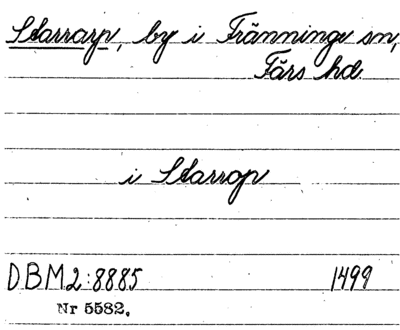 Starrarp, by i Tränninge sn,
Färs hd
i Starrop
DBM2:8885 1499
Nr 5582.